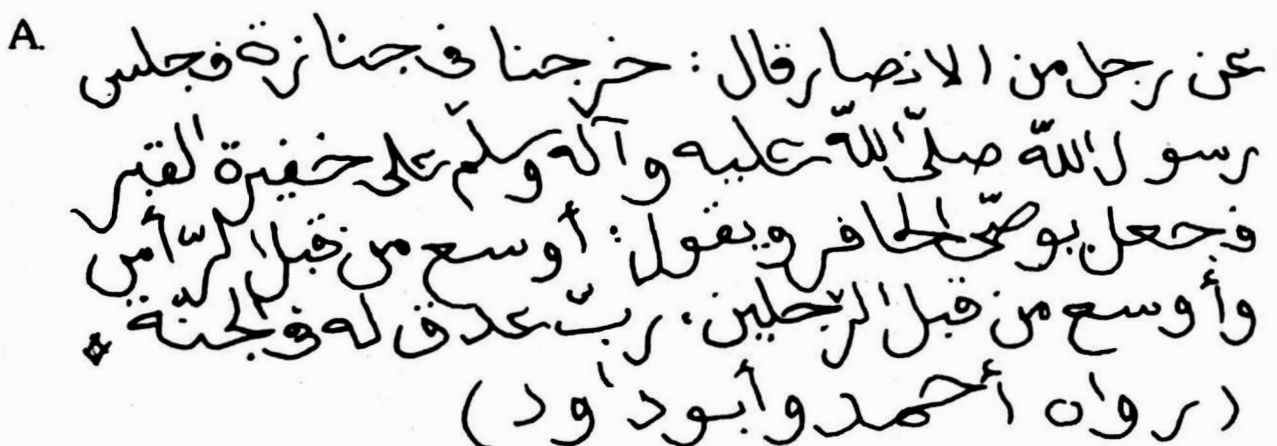 A. عن رجل من الانصار قال: خرجنا فى جنازة فجلس
رسول اللّه صلّى اللّه عليه وآله وسلّم على خفيرة القبر
فجعل يوصّى الحافر ويقول: أوسع من قبل الرّأس
وأوسع من قبل الرّجلين، ربّ عدق له فى الجنّة *
(رواه أحمد وأبو داود)